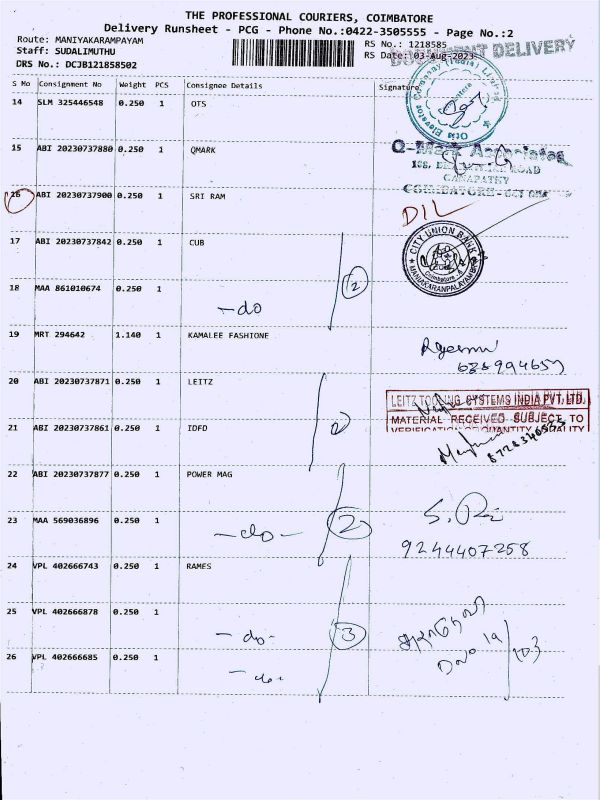 THE PROFESSIONAL COURIERS, COIMBATORE
Delivery Runsheet - PCG - Phone No.:0422-3505555 - Page No.:2
Route: MANIYAKARAMPAYAM
RS No.: 1218585
DOCUMENT DELIVERY
Staff: SUDALIMUTHU
RS Date: 03-Aug-2023
DRS No.: DCJB121858502
S Mo Consignment No Weight PCS Consignee Details Signature
14 SLM 325446548 0.250 1 OTS
Otis Elevator Company (India) Limited
15 ABI 20230737880 0.250 1 QMARK
Q-Mark Associates
ROAD
GANAPATHY
COIMBATORE
16 ABI 20230737900 0.250 1 SRI RAM
DIL
17 ABI 20230737842 0.250 1 CUB
CITY UNION BANK
Coimbatore
2
18 MAA 861010674 0.250 1
-do
19 MRT 294642 1.140 1 KAMALEE FASHIONE
20 ABI 20230737871 0.250 1 LEITZ
LEITZ TOOLING SYSTEMS INDIA PVT. LTD.
MATERIAL RECEIVED SUBJECT TO
VERIFICATION OF QUANTITY QUALITY
21 ABI 20230737861 0.250 1 IDFD
22 ABI 20230737877 0.250 1 POWER MAG
23 MAA 569036896 0.250 1
-do-
2
9244407258
24 VPL 402666743 0.250 1 RAMES
25 VPL 402666878 0.250 1
-do-
3
26 VPL 402666685 0.250 1
-do-